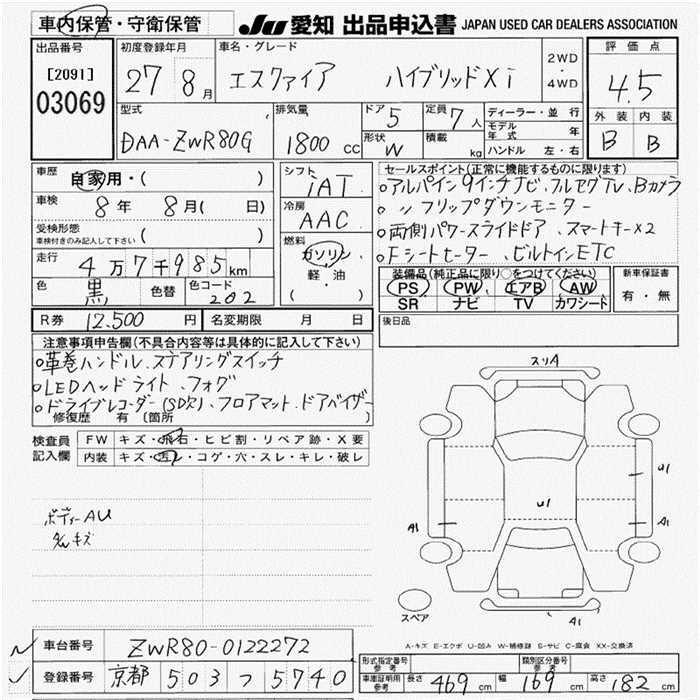 車内保管・守衛保管 JU 愛知 出品申込書 JAPAN USED CAR DEALERS ASSOCIATION
出品番号 初度登録年月 車名・グレード 評価点
[2091] 27 8月 エスクァイア ハイブリッドXi 2WD・4WD 4.5
03069 外装 内装
型式 排気量 ドア 5 定員 7人 ディーラー・並行 B B
DAA-ZWR80G 1800 cc 形状 W 積載 kg モデル年式 年
ハンドル 左・右
車歴 自家用・( ) シフト iAT セールスポイント(正常に機能するものに限ります)
車検 8年 8月( 日) 冷房 AAC ・アルパイン9インチナビ、フルセグTV、Bカメラ
受検形態 ( ) ・〃フリップダウンモニター
車検付きのみ記入して下さい
燃料 ・両側パワースライドドア、スマートキーX2
走行 4万7千985km ガソリン ・Fシートヒーター、ビルトインETC
色 黒 色替 色コード 202 軽・油 ( )
装備品(純正品に限り○をつけてください) 新車保証書
PS PW エアB AW 有・無
SR ナビ TV カワシート
R券 12,500円 名変期限 月 日 後日品
注意事項申告欄(不具合内容等は具体的に記入して下さい)
・革巻ハンドル、ステアリングスイッチ
・LEDヘッドライト、フォグ
・ドライブレコーダー(SD欠)、フロアマット、ドアバイザー
修復歴 有 〔箇所 〕
スリA
検査員記入欄 FW キズ・飛石・ヒビ割・リペア跡・X要
内装 キズ・汚レ・コゲ・穴・スレ・キレ・破レ
U1
U1
ボディーAU
A1 A1
タンキズ
スペア A1
A-キズ E-エクボ U-凹み W-補修跡 S-サビ C-腐食 XX-交換済
車台番号 ZWR80-0122272
登録番号 京都 503 つ 5740
形式指定番号 参考 類別区分番号 参考
車庫証明用 参考 長さ 469 cm 幅 169 cm 高さ 182 cm